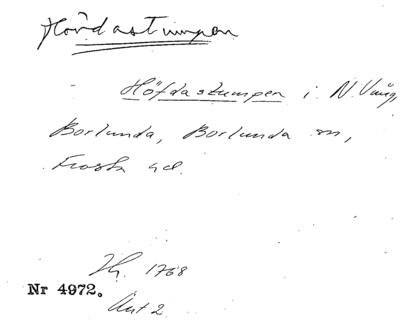 Hördastumpen
Höfdastumpen i N. Vång,
Borlunda, Borlunda sn,
Frosta hd.
1768
Nr 4972.
Akt 2